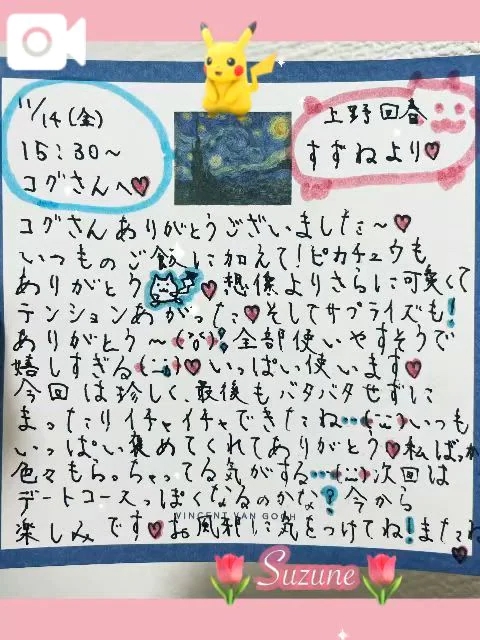 11/14(金)
15:30~
コグさんへ♥
上野回春
すずねより♥
コグさんありがとうございました~♥
いつものご飯に加えて!ピカチュウも
ありがとう♥想像よりさらに可愛くて
テンションあがった♥そしてサプライズも!
ありがとう~(;o;)!全部使いやすそうで
嬉しすぎる(;_;)♥いっぱい使います♥
今回は珍しく、最後もバタバタせずに
まったりイチャイチャできたね…(¨)いつも
いっぱい褒めてくれてありがとう♥私ばっか
色々もらっちゃってる気がする…(¨)次回は
デートコースっぽくなるのかな?今から
楽しみです♥お風邪に気をつけてね!またね
♥
VINCENT VAN GOGH
Suzune